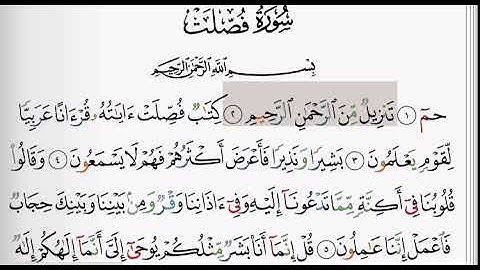 سُورَةُ فُصِّلَتْ
بِسْمِ ٱللَّهِ ٱلرَّحْمَٰنِ ٱلرَّحِيمِ
حمٓ ١ تَنزِيلٌ مِّنَ ٱلرَّحْمَٰنِ ٱلرَّحِيمِ ٢ كِتَٰبٌ فُصِّلَتْ ءَايَٰتُهُۥ قُرْءَانًا عَرَبِيًّا
لِّقَوْمٍ يَعْلَمُونَ ٣ بَشِيرًا وَنَذِيرًا فَأَعْرَضَ أَكْثَرُهُمْ فَهُمْ لَا يَسْمَعُونَ ٤ وَقَالُوا۟
قُلُوبُنَا فِىٓ أَكِنَّةٍ مِّمَّا تَدْعُونَآ إِلَيْهِ وَفِىٓ ءَاذَانِنَا وَقْرٌ وَمِنۢ بَيْنِنَا وَبَيْنِكَ حِجَابٌ
فَٱعْمَلْ إِنَّنَا عَٰمِلُونَ ٥ قُلْ إِنَّمَآ أَنَا۠ بَشَرٌ مِّثْلُكُمْ يُوحَىٰٓ إِلَىَّ أَنَّمَآ إِلَٰهُكُمْ إِلَٰهٌ